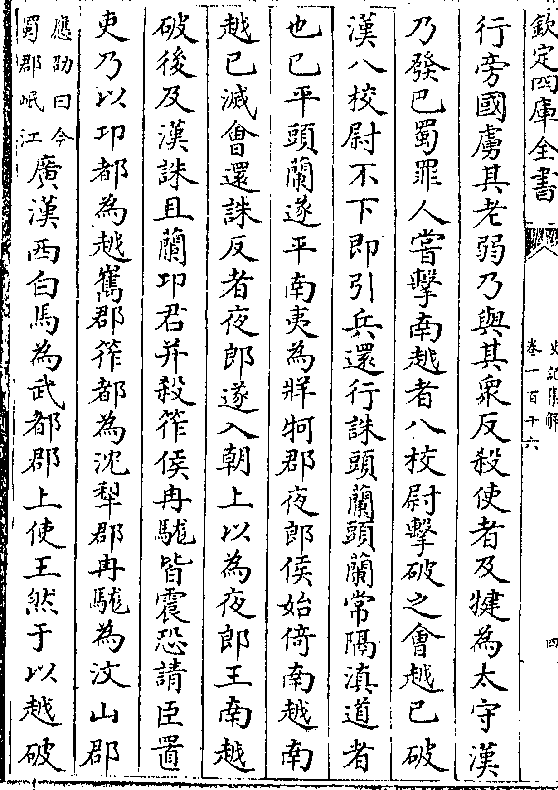 欽定四庫全書
史記集解
卷一百十六
四
行旁國虜其老弱乃與其衆反殺使者及犍為太守漢
乃發巴蜀罪人嘗擊南越者八校尉擊破之會越已破
漢八校尉不下即引兵還行誅頭蘭頭蘭常隔滇道者
也已平頭蘭遂平南夷為牂牁郡夜郎侯始倚南越南
越已滅會還誅反者夜郎遂入朝上以為夜郎王南越
破後及漢誅且蘭卭君并殺筰侯冉駹皆震恐請臣置
吏乃以卭都為越嶲郡筰都為沈犂郡冉駹為汶山郡
應劭曰今蜀郡岷江
廣漢西白馬為武都郡上使王然于以越破